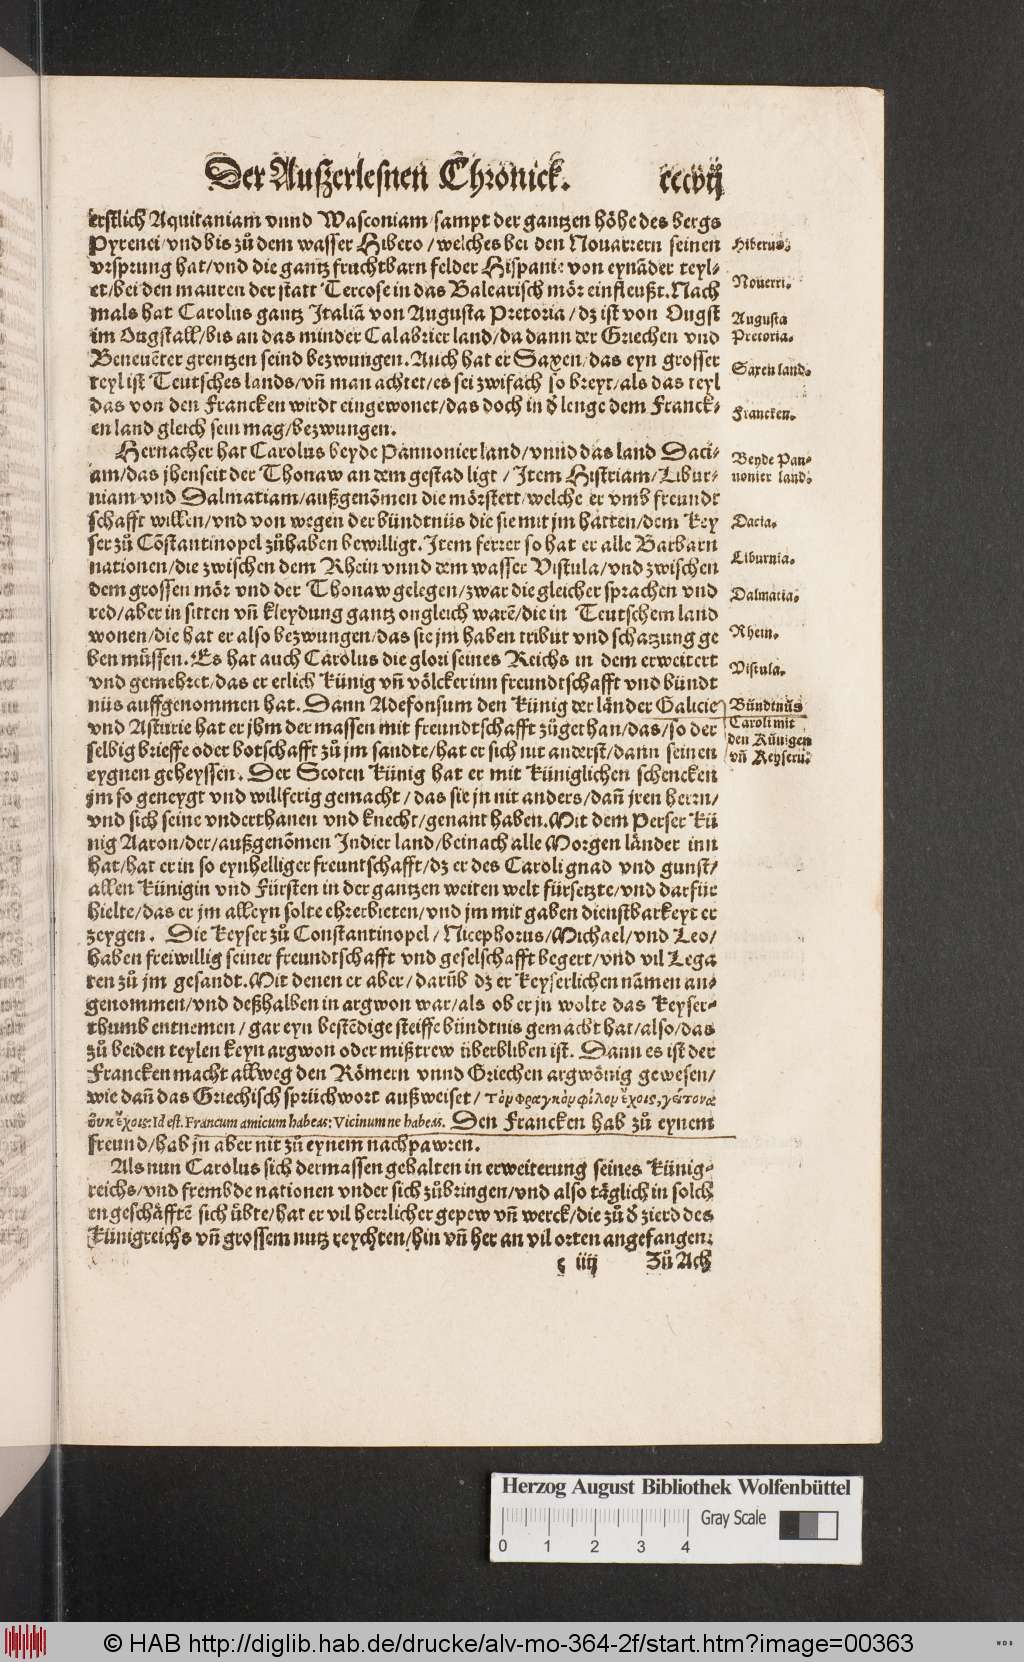 Der Außerlesnen Chronick. cccvij
erstlich Aquitaniam vnnd Wasconiam/sampt der gantzen höhe des bergs
Pyrenei/vnd bis zů dem wasser Hibero/welches bei den Nouarrern seinen
vrsprung hat/vnd die gantz fruchtbarn felder Hispanie von eynāder teyl-
et/bei den mauren der statt Tercose in das Balearisch mör einfleußt. Nach
mals hat Carolus gantz Italiā von Augusta Pretoria/dz ist von Ougst
im Ougstall/bis an das minder Calabrier land/da dann der Griechen vnd
Beneuēter grentzen seind bezwungen. Auch hat er Saxen/das eyn grosser
teyl ist Teutsches lands/vñ man achtet/es sei zwifach so breyt/als das teyl
das von den Francken wirdt eingewonet/das doch in d̕ lenge dem Franck-
en land gleich sein mag/bezwungen.
Hernacher hat Carolus beyde Pannonier land/vnnd das land Daci-
am/das jhenseit der Thonaw an dem gestad ligt/Item Histriam/Libur-
niam vnd Dalmatiam/außgenōmen die mörstett/welche er vmb freundt
schafft willen/vnd von wegen der bündtnüs die sie mit jm hatten/dem Key
ser zů Cōstantinopel zůhaben bewilligt. Item ferrer so hat er alle Barbarn
nationen/die zwischen dem Rhein vnnd dem wasser Vistula/vnd zwischen
dem grossen mör vnd der Thonaw gelegen/zwar die gleicher sprachen vnd
red/aber in sitten vñ kleydung gantz ongleich warē/die in Teutschem land
wonen/die hat er also bezwungen/das sie jm haben tribut vnd schatzung ge
ben müssen. Es hat auch Carolus die glori seines Reichs in dem erweitert
vnd gemehret/das er etlich Künig vñ völcker inn freundtschafft vnd bündt
nüs auffgenommen hat. Dann Adefonsum den Künig der länder Galicie
vnd Asturie hat er jhm der massen mit freundtschafft zůgethan/das/so der
selbig brieffe oder botschafft zů jm sandte/hat er sich nit anderst/dann seinen
eygnen geheyssen. Der Scoten Künig hat er mit Küniglichen schencken
jm so geneygt vnd willferig gemacht/das sie jn nit anders/dañ jren herrn/
vnd sich seine vnderthanen vnd knecht/genant haben. Mit dem Perser Kü
nig Aaron/der/außgenōmen Indier land/beinach alle Morgen länder inn
hat/hat er in so eynhelliger freuntschafft/dz er des Caroli gnad vnd gunst/
allen Künigin vnd Fürsten in der gantzen weiten welt fürsetzte/vnd darfür
hielte/das er jm alleyn solte ehrerbieten/vnd jm mit gaben dienstbarkeyt er
zeygen. Die Keyser zů Constantinopel/Nicephorus/Michael/vnd Leo/
haben freiwillig seiner freundtschafft vnd geselschafft begert/vnd vil Lega
ten zů jm gesandt. Mit denen er aber/darūb dz er Keyserlichen nāmen an-
genommen/vnd deßhalben in argwon war/als ob er jn wolte das Keyser-
thumb entnemen/gar eyn bestēdige steiffe bündtnis gemacht hat/also/das
zů beiden teylen keyn argwon oder mißtrew überbliben ist. Dann es ist der
Francken macht allweg den Römern vnnd Griechen argwönig gewesen/
wie dañ das Griechisch sprüchwort außweiset/τὸμ φραγκὸμ φίλομ ἔχοις, γείτονα
οὐκ ἔχοις: Id est. Francum amicum habeas: Vicinum ne habeas. Den Francken hab zů eynem
freund/hab jn aber nit zů eynem nachpawren.
Als nun Carolus sich dermassen gehalten in erweiterung seines Künig-
reichs/vnd frembde nationen vnder sich zůbringen/vnd also täglich in solch
en geschäfftē sich übte/hat er vil herrlicher gepew vñ werck/die zů d̕ zierd des
Künigreichs vñ grossem nutz reychten/hin vñ her an vil orten angefangen:
ç iiij Zů Ach
Hiberus.
Nouerri.
Augusta
Pretoria.
Saxen land.
Francken.
Beyde Pan-
nonier land.
Dacia.
Liburnia.
Dalmatia.
Rhein.
Vistula.
Bündinüs
Caroli mit
den Künigen
vñ Keysern.
Herzog August Bibliothek Wolfenbüttel
Gray Scale
0 1 2 3 4
© HAB http://diglib.hab.de/drucke/alv-mo-364-2f/start.htm?image=00363